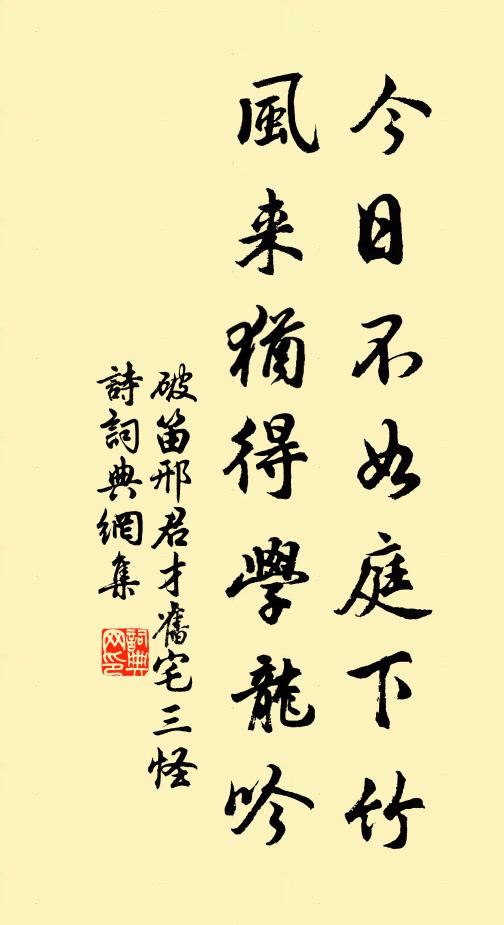 今日不如庭下竹
風来猶得學龍吟
破笛邢君才舊宅三怪
詩詞典網集
詞典网印